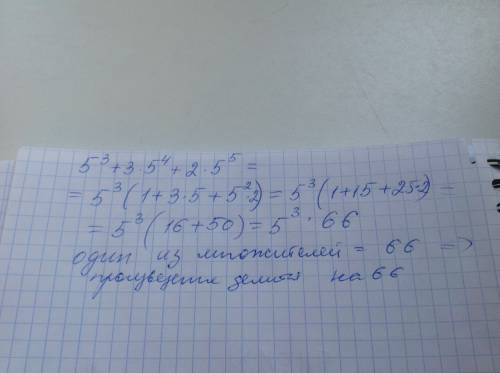 5³+3·5⁴+2·5⁵=
=5³(1+3·5+5²·2)=5³(1+15+25·2)=
=5³(16+50)=5³·66
один из множителей = 66 =>
произведение делится на 66